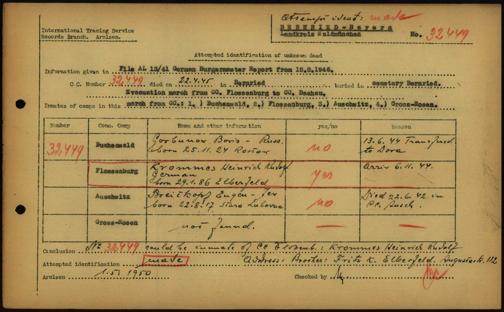 Attempt ident: made
International Tracing Service
BERNRIED-Bavara
No. 32449
Records Branch. Arolsen.
Landkreis
Attempted identification of unknown dead
Information given in File AL 13/41 German Burgermaster Report from 18.9.1946.
C.C. Number 32449 died on 22.4.45 in Bernried buried in cemetery Bernried.
Evacuation march from CC. Flossenburg to CC. Dachau.
Inmates of camps in this march from CC.: 1.) Buchenwald, 2.) Flossenburg, 3.) Auschwitz, 4.) Gross-Rosen.
Number Conc. Camp Name and other information yes/no Reason
32449 Buchenwald Gorbunow Boris - Russ. born 25.11.24 Rostow no 13.6.44 Transferred to Dora
Flossenburg Krommes Heinrich Rudolf German born 29.1.86 Elberfeld yes Arriv 6.11.44.
Auschwitz Breitkopf Eugen born 22.8.17 Stara Lubovna no Died 22.6.42 in CC. Ausch.
Gross-Rosen not found.
Conclusion No 32449 could be inmate of CC Flossenb.: Krommes Heinrich Rudolf
Attempted identification made Address: Brother: Fritz K. Elberfeld, Augustastr. 112
Arolsen 1.5. 1950 Checked by